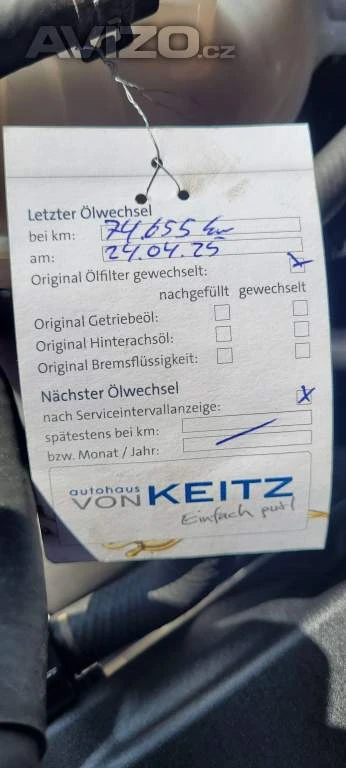 AVIZO.cz
Letzter Ölwechsel
bei km: 74.655 km
am: 24.04.25
Original Ölfilter gewechselt: x
nachgefüllt gewechselt
Original Getriebeöl:
Original Hinterachsöl:
Original Bremsflüssigkeit:
Nächster Ölwechsel
nach Serviceintervallanzeige: x
spätestens bei km:
bzw. Monat / Jahr:
autohaus
VON KEITZ
Einfach gut!